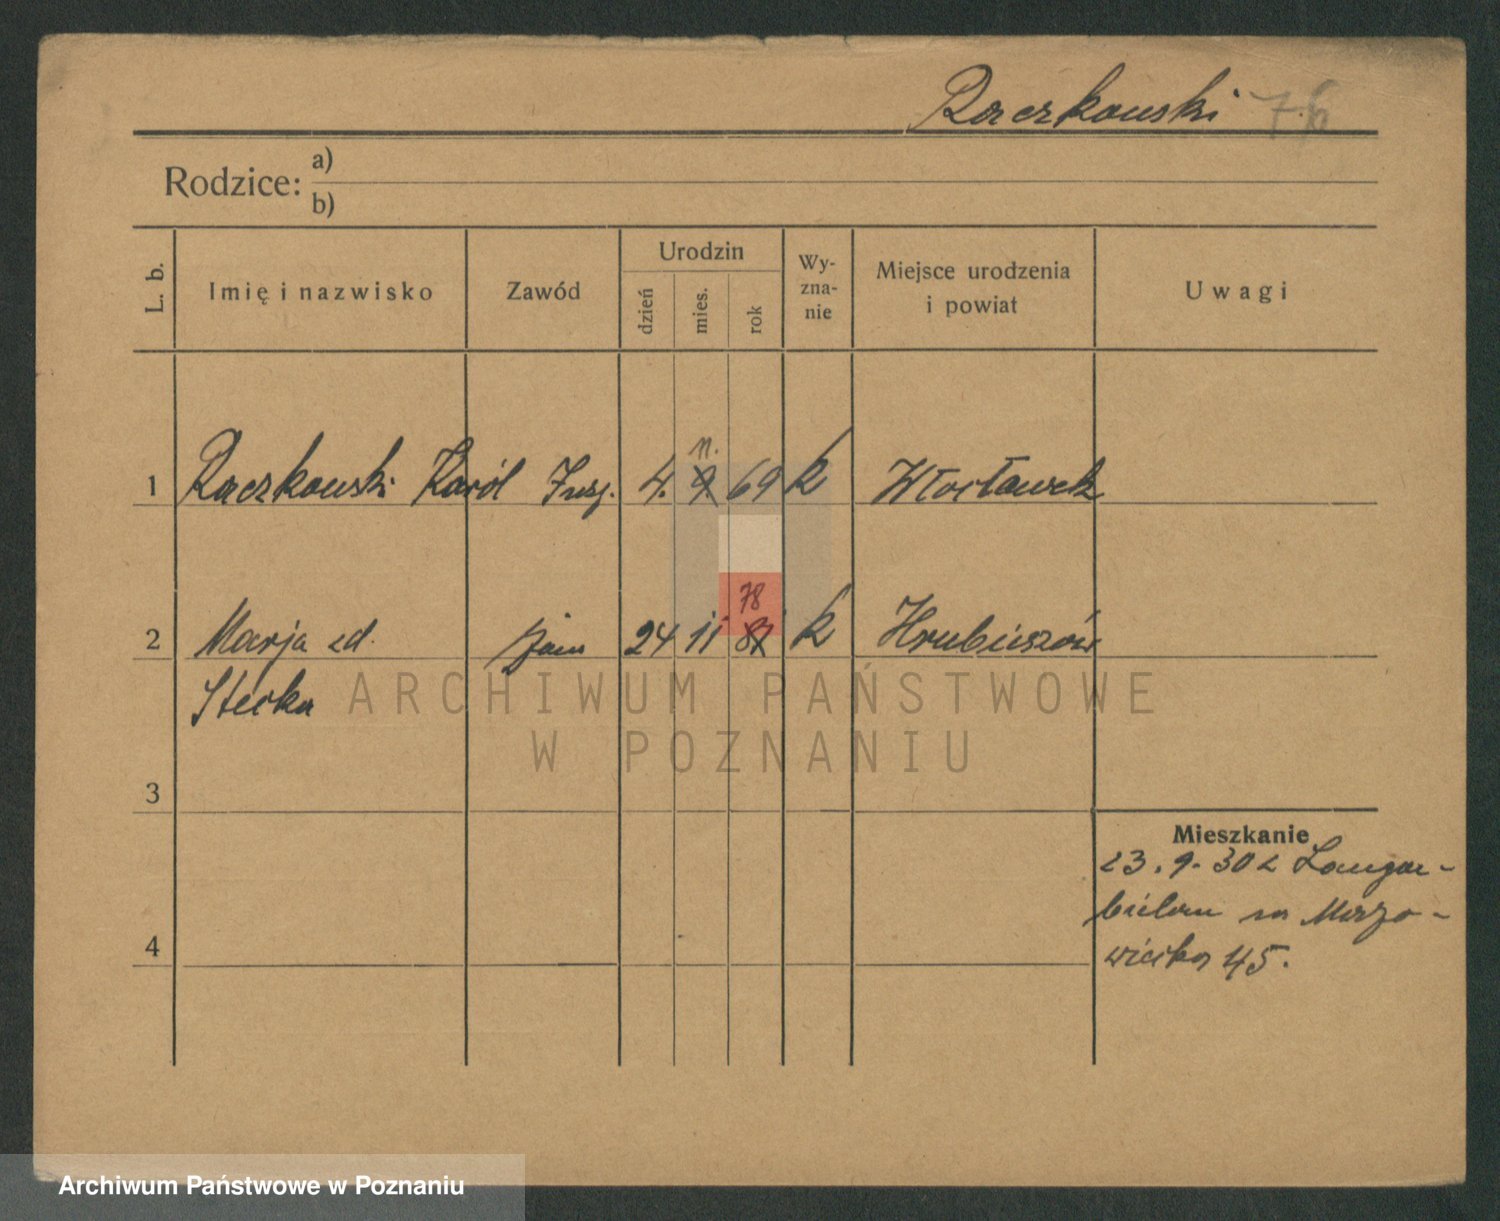 Raczkowski 76
Rodzice: a)
b)
L. b.
Imię i nazwisko
Zawód
Urodzin
dzień
mies.
rok
Wy-
zna-
nie
Miejsce urodzenia
i powiat
Uwagi
1 Raczkowski Karól 4. 9 11. 69 k Włocławek
2 Marja zd. 24 11 81 78 k Hrubieszów
Stecka
3
4
Mieszkanie
23.9.30 z Langen-
bielau na Mazo-
wiecką 45.
ARCHIWUM PAŃSTWOWE
W POZNANIU
Archiwum Państwowe w Poznaniu